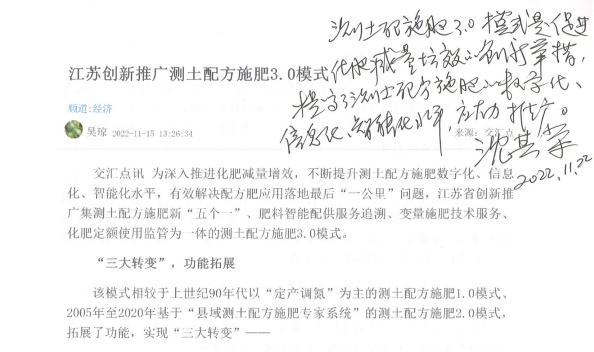 测土配方施肥3.0模式是促进
化肥减量增效的创新举措,
提高了测土配方施肥的数字化、
信息化、智能化水平,应大力推广。
沈其荣
2022.11.22
江苏创新推广测土配方施肥3.0模式
频道:经济
吴琼 2022-11-15 13:26:34
来源:交汇点
交汇点讯 为深入推进化肥减量增效,不断提升测土配方施肥数字化、信息
化、智能化水平,有效解决配方肥应用落地最后“一公里”问题,江苏省创新推
广集测土配方施肥新“五个一”、肥料智能配供服务追溯、变量施肥技术服务、
化肥定额使用监管为一体的测土配方施肥3.0模式。
“三大转变”,功能拓展
该模式相较于上世纪90年代以“定产调氮”为主的测土配方施肥1.0模式、
2005年至2020年基于“县域测土配方施肥专家系统”的测土配方施肥2.0模式,
拓展了功能,实现“三大转变”——